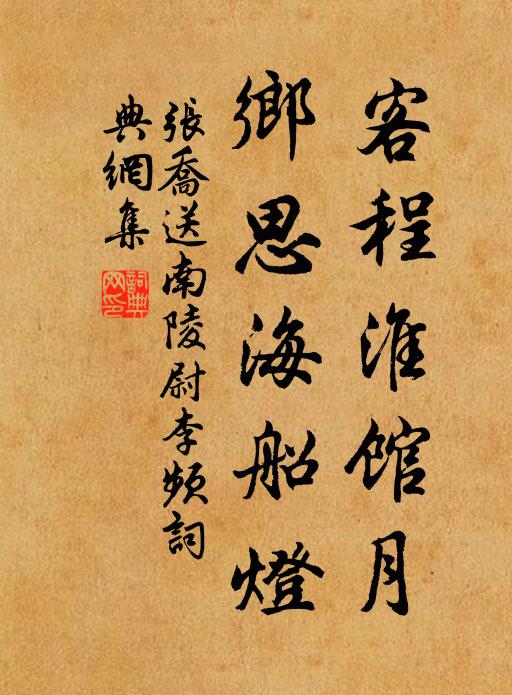 客程淮館月
鄉思海船燈
張喬送南陵尉李頻詞
典網集
詞典網印